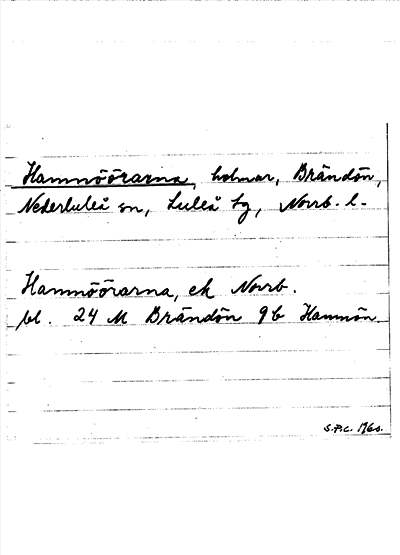 Hamnöörarna, holmar, Brändön,
Nederluleå sn, Luleå tg, Norrb. l.
Hamnöörarna, ek Norrb.
bl. 24 M Brändön 9b Hamnön.
S.P.C. 1960.